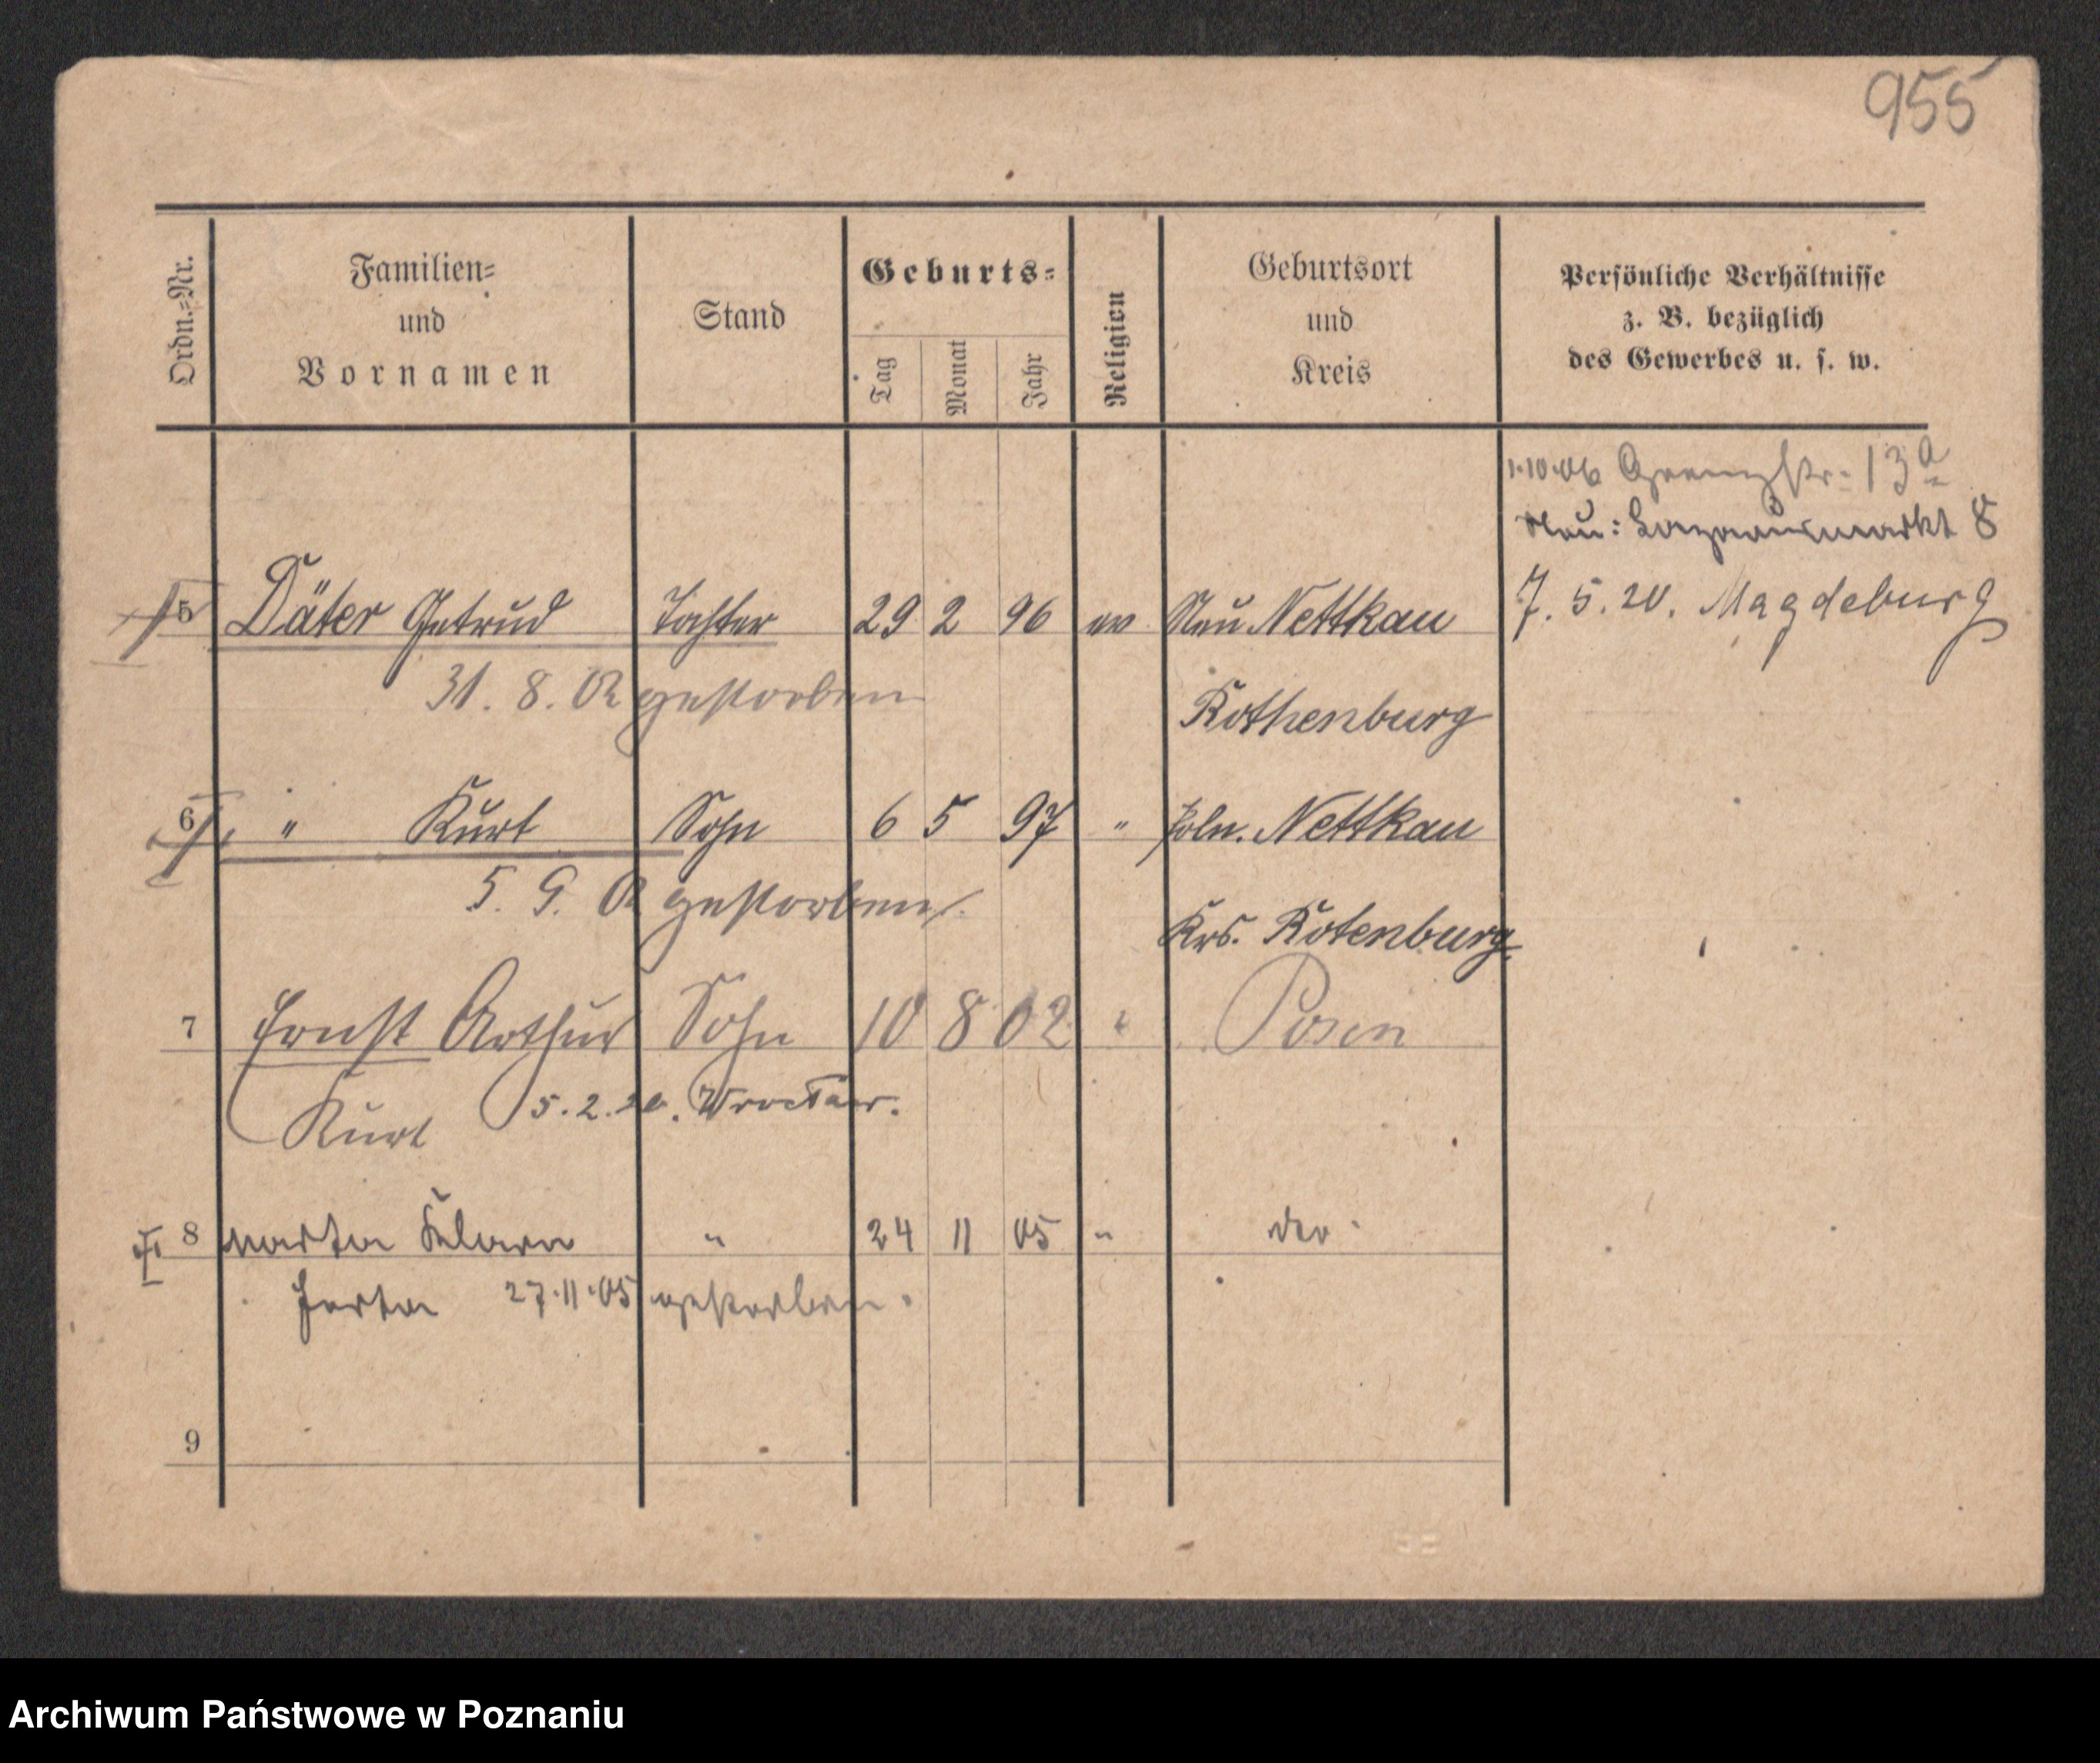 955
Ordn.=Nr.
Familien=
und
Vornamen
Stand
Geburts=
Tag
Monat
Jahr
Religion
Geburtsort
und
Kreis
Persönliche Verhältnisse
z. B. bezüglich
des Gewerbes u. s. w.
1.10.06 Grenzstr. 13a
Neu: Lazarusmarkt 8
5 Däter Getrud Tochter 29 2 96 ev Neu Nettkau 7. 5. 20. Magdeburg
31. 8. 02 gestorben Rothenburg
6 " Kurt Sohn 6 5 97 " Poln. Nettkau
5. 9. 02 gestorben Krs. Rotenburg
7 Ernst Arthur Sohn 10 8 02 " Posen
Kurt 5. 2. 20. Wrocław.
8 Marta Klara " 24 11 05 " do
Herta 27.11.05 gestorben.
9
Archiwum Państwowe w Poznaniu